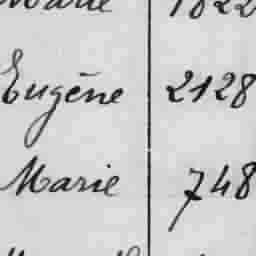 Marie 1822
Eugène 2128
Marie 748